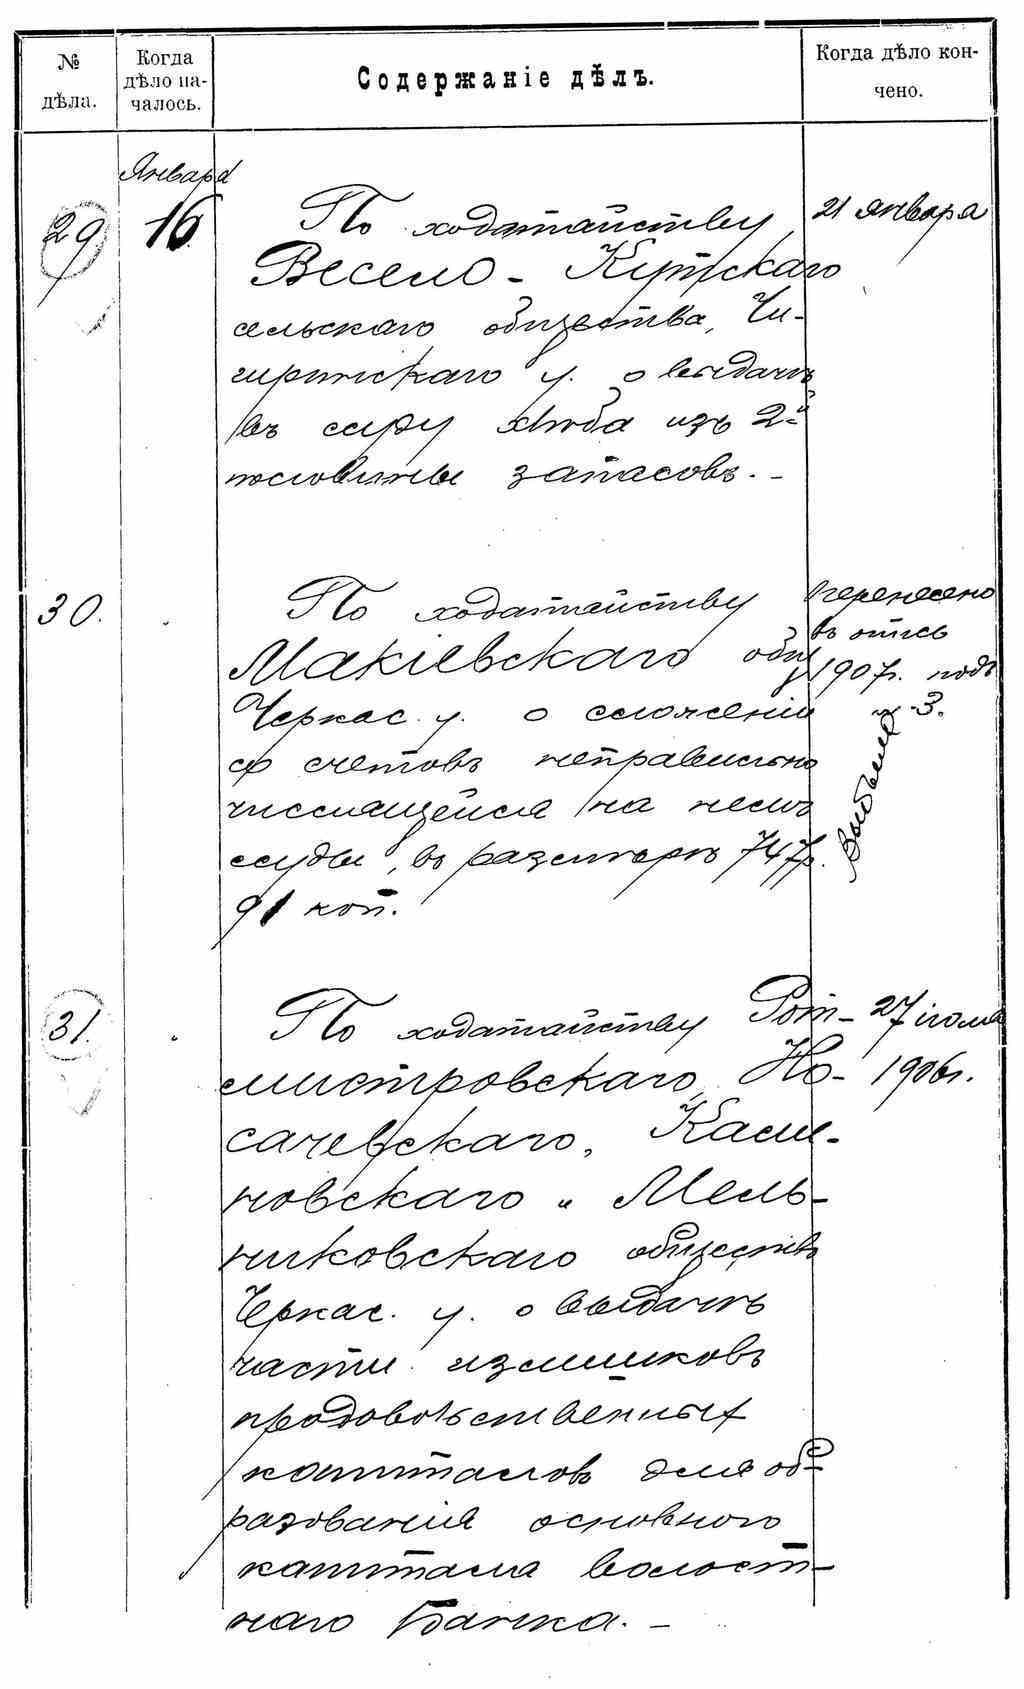 № дѣла.
Когда дѣло на-
чалось.
Содержаніе дѣлъ.
Когда дѣло кон-
чено.
Января
29
16
По ходатайству
21 января
Весело-Кутскаго
сельскаго общества, Чи-
гиринскаго у. о выдачѣ
въ ссуду хлѣба изъ 2-й
половины запасовъ. -
30.
По ходатайству
Макіевскаго общ
Черкас. у. о сложеніи
со счетовъ неправильно
числящейся на немъ
ссуды, въ размѣрѣ 747р.
91 коп.
перенесено
въ опись
1907г. подъ
№ 3.
Выбыло
31.
По ходатайству Рот-
27 іюля
1906г.
мистровскаго, Но-
сачевскаго,
новскаго и Мель-
никовскаго обществъ
Черкас. у. о выдачѣ
части излишковъ
продовольственныхъ
капиталовъ для об-
разованія основного
капитала волост-
наго Банка. -